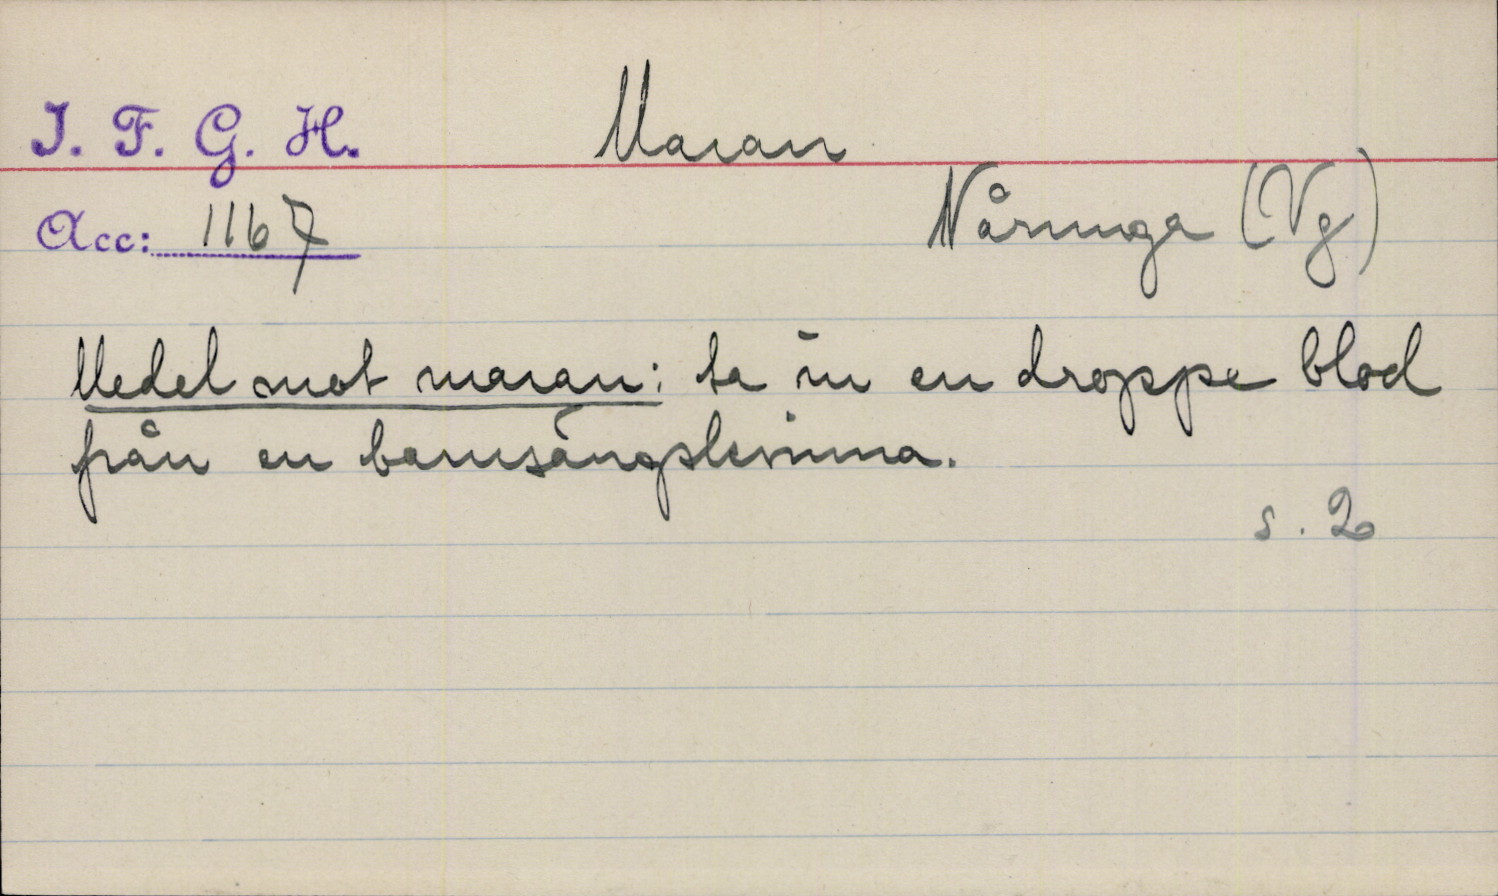 I. F. G. H.
Maran
Acc: 1167
Nårunga (Vg)
Medel mot maran: ta in en droppe blod
från en barnsängskvinna.
s. 2